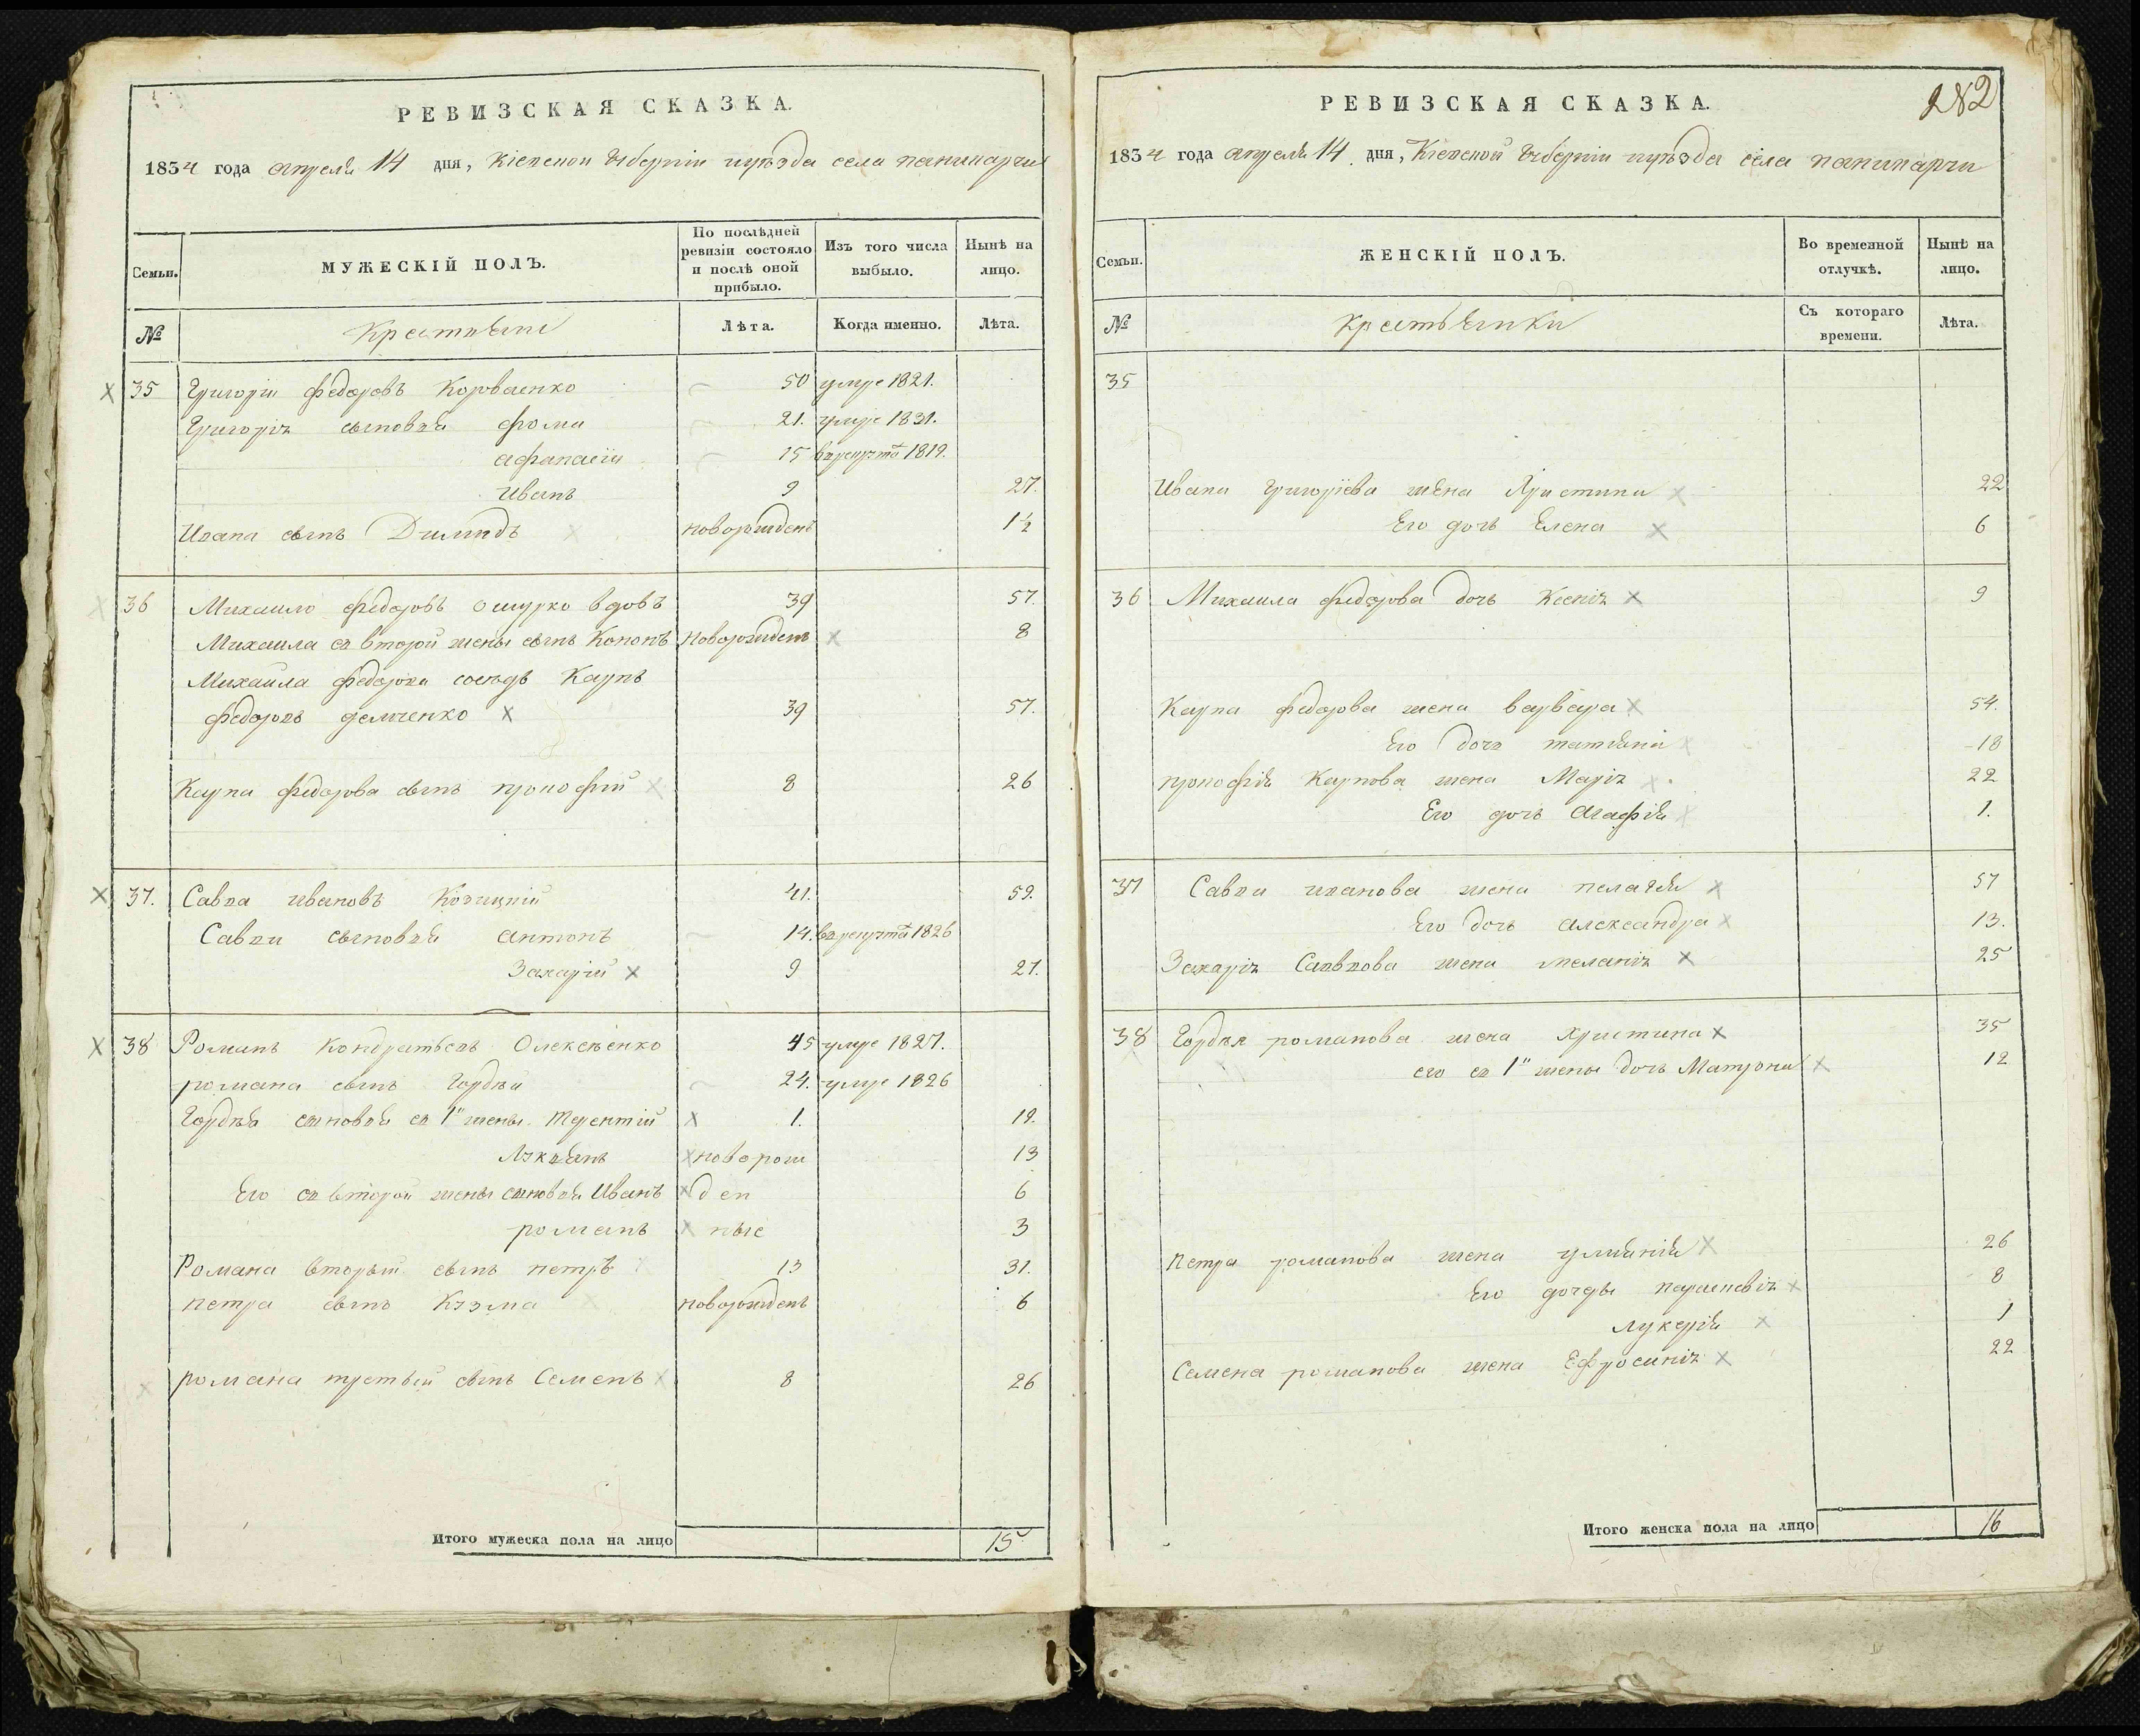 РЕВИЗСКАЯ СКАЗКА.
1834 года апреля 14 дня, Кіевской Губерніи и уѣзда села паникарчи
Семьи.
МУЖЕСКІЙ ПОЛЪ.
По послѣдней ревизіи состояло и послѣ оной прибыло.
Изъ того числа выбыло.
Нынѣ на лицо.
№
Крестьяне
Лѣта.
Когда именно.
Лѣта.
35 Григорій федоровъ Короваенко 50 умре 1821.
Григорія сыновья фома 21. умре 1831.
афанасій 15 въ рекрута 1819.
Иванъ 9 27.
Ивана сынъ Димидъ новорожденъ 1½
36 Михаило федоровъ ошурко вдовъ 39 57.
Михаила съ второй жены сынъ Кононъ новорожденъ 8
Михаила федорова сосѣдъ Карпъ
федоровъ демченко 39 57.
Карпа федорова сынъ прокофій 8 26
37. Савва ивановъ Козицкій 41. 59.
Саввы сыновья антонъ 14. въ рекрута 1826
Захарій 9 27.
38 Романъ Кондратьевъ Олексѣенко 45 умре 1827.
романа сынъ Гордѣй 24. умре 1826
Гордѣя сыновья съ 1й жены Терентій 1. 19.
Лукьянъ новорож 13
Его съ второй жены сыновья Иванъ ден 6
романъ ные 3
Романа вторый сынъ петръ 13 31.
петра сынъ Кузма новорожденъ 6
романа третьій сынъ Семенъ 8 26
Итого мужеска пола на лицо 15
282
РЕВИЗСКАЯ СКАЗКА.
1834 года апреля 14 дня, Кіевской Губерніи и уѣзда села паникарчи
Семьи.
ЖЕНСКІЙ ПОЛЪ.
Во временной отлучкѣ.
Нынѣ на лицо.
№
Крестьянки
Съ котораго времени.
Лѣта.
35
Ивана Григоріева жена Христина 22
Его дочь Елена 6
36 Михаила федорова дочь Ксенія 9
Карпа федорова жена варвара 54.
Его дочь татьяна 18
прокофія Карпова жена Марія 22
Его дочь агафія 1.
37 Саввы иванова жена пелагея 57
Его дочь александра 13.
Захарія Саввова жена меланія 25
38 Гордѣя романова жена Христина 35
его съ 1й жены дочь Матрона 12
Петра романова жена улияния 26
Его дочеры парасковія 8
Лукерія 1
Семена романова жена Ефросинія 22
Итого женска пола на лицо 16